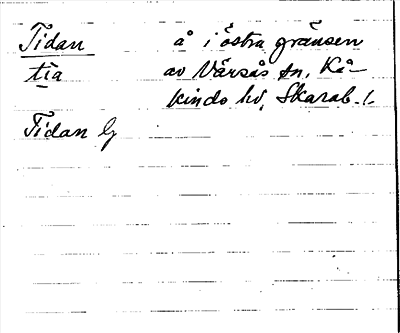 Tidan å i östra gränsen
tìa av Värsås sn, Kå-
kinds hd, Skarab. l.
Tidan G